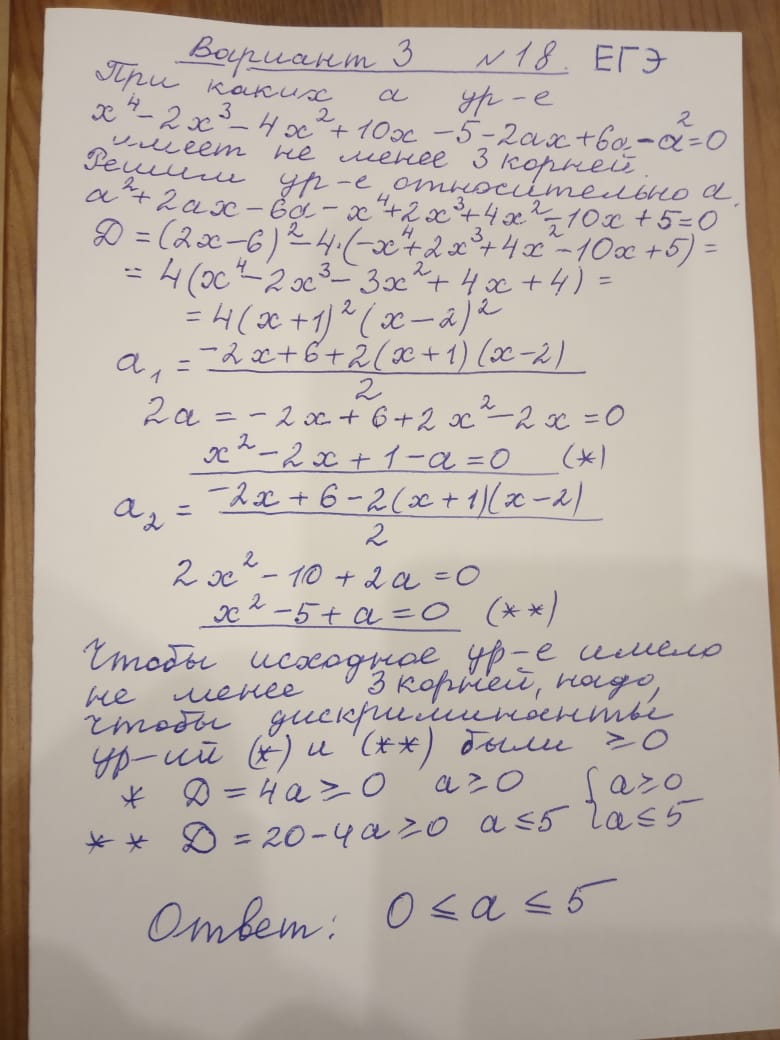 Вариант 3 №18. ЕГЭ
При каких а ур-е
x⁴-2x³-4x²+10x-5-2ax+6a-a²=0
имеет не менее 3 корней.
Решим ур-е относительно а.
a²+2ax-6a-x⁴+2x³+4x²-10x+5=0
Д=(2x-6)²-4·(-x⁴+2x³+4x²-10x+5)=
=4(x⁴-2x³-3x²+4x+4)=
=4(x+1)²(x-2)²
a₁=(-2x+6+2(x+1)(x-2))/2
2a=-2x+6+2x²-2x=0
x²-2x+1-a=0 (*)
a₂=(-2x+6-2(x+1)(x-2))/2
2x²-10+2a=0
x²-5+a=0 (**)
Чтобы исходное ур-е имело
не менее 3 корней, надо,
чтобы дискриминанты
ур-ий (*) и (**) были ≥0
* Д=4a≥0 a≥0 {a≥0
** Д=20-4a≥0 a≤5 {a≤5
Ответ: 0≤a≤5